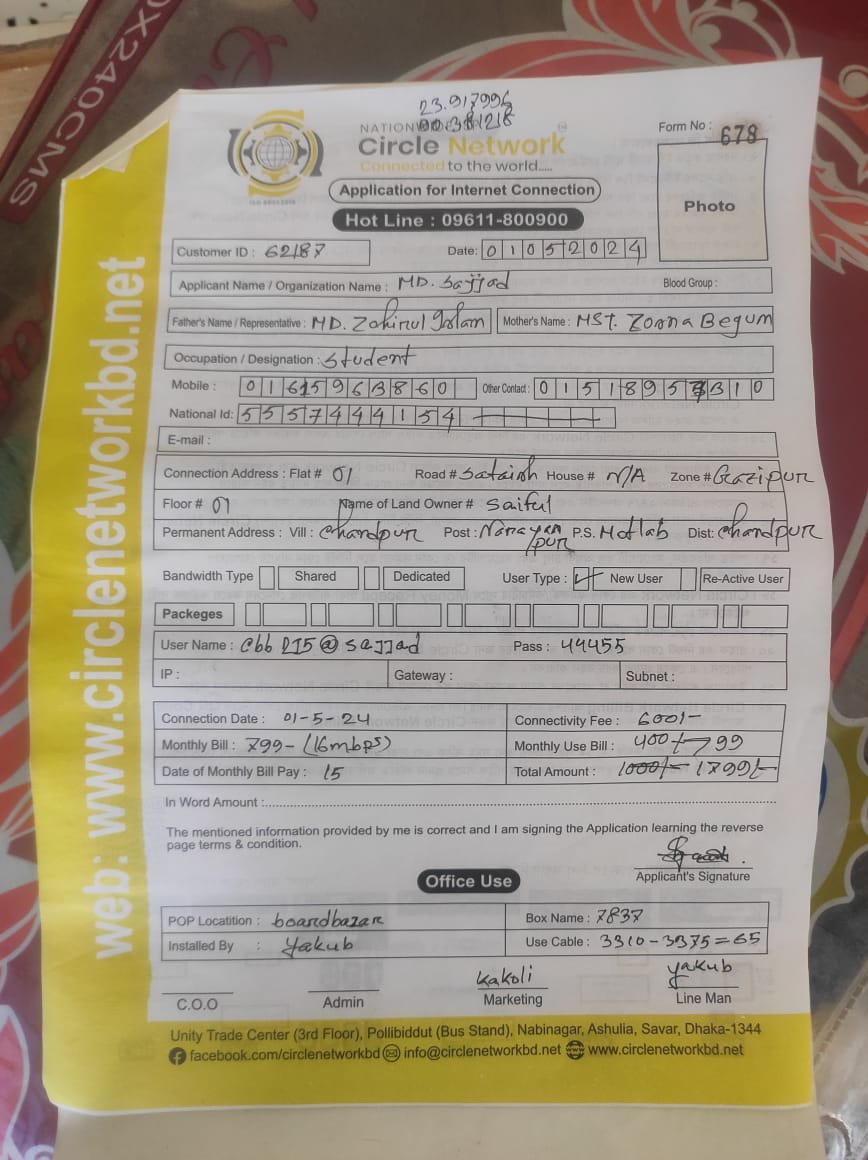 OX240CMS
23.917996
NATIONWIDE ISP
Circle Network
Connected to the world.....
Form No : 678
Application for Internet Connection
Hot Line : 09611-800900
Photo
Customer ID : 62187 Date: 01052024
Applicant Name / Organization Name : MD. Sajjad Blood Group :
Father's Name / Representative : MD. Zohirul Islam Mother's Name : MST. Zoona Begum
Occupation / Designation : Student
Mobile : 01615963860 Other Contact : 0151895 310
National Id: 5557444154
E-mail :
Connection Address : Flat # 01 Road # Sataish House # N/A Zone # Gazipur
Floor # 01 Name of Land Owner # Saiful
Permanent Address : Vill : Chandpur Post : Narayanpur P.S. Motlab Dist: Chandpur
Bandwidth Type Shared Dedicated User Type : New User Re-Active User
Packeges
User Name : Cbb D15@sajjad Pass : 44455
IP : Gateway : Subnet :
Connection Date : 01-5-24 Connectivity Fee : 600/-
Monthly Bill : 799- (16mbps) Monthly Use Bill : 400/- 799
Date of Monthly Bill Pay : 15 Total Amount : 1000/- 1799/-
In Word Amount :
The mentioned information provided by me is correct and I am signing the Application learning the reverse
page terms & condition.
Applicant's Signature
Office Use
POP Locatition : boardbazar Box Name : 7837
Installed By : Yakub Use Cable : 3310-3375=65
Kakoli Yakub
C.O.O Admin Marketing Line Man
Unity Trade Center (3rd Floor), Pollibiddut (Bus Stand), Nabinagar, Ashulia, Savar, Dhaka-1344
facebook.com/circlenetworkbd info@circlenetworkbd.net www.circlenetworkbd.net
web: www.circlenetworkbd.net